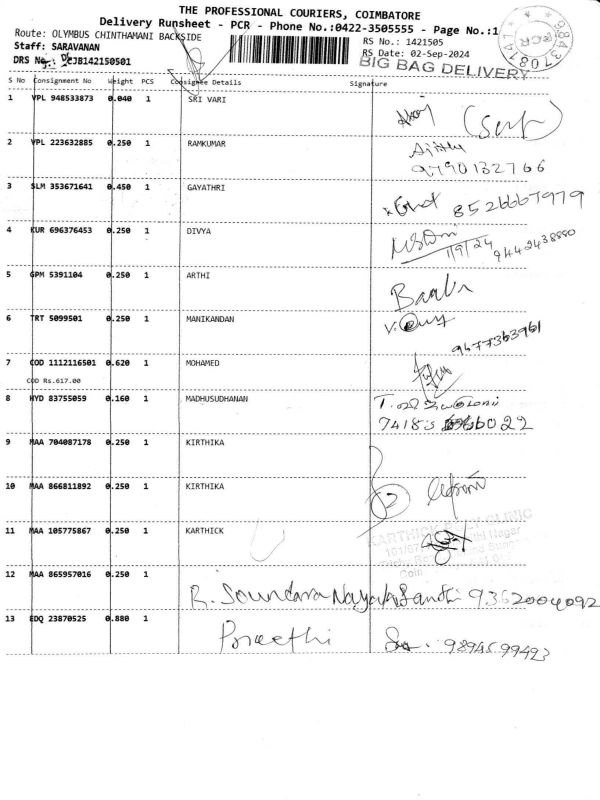 THE PROFESSIONAL COURIERS, COIMBATORE
Delivery Runsheet - PCR - Phone No.:0422-3505555 - Page No.:1
Route: OLYMBUS CHINTHAMANI BACKSIDE
RS No.: 1421505
Staff: SARAVANAN
RS Date: 02-Sep-2024
DRS No.: CJB142150501
BIG BAG DELIVERY
9843708141
PCR
S No Consignment No Weight PCS Consignee Details Signature
1 VPL 948533873 0.040 1 SRI VARI
2 VPL 223632885 0.250 1 RAMKUMAR
9790132766
3 SLM 353671641 0.450 1 GAYATHRI 8526667979
4 KUR 696376453 0.250 1 DIVYA
1/9/24 9442438880
5 GPM 5391104 0.250 1 ARTHI
6 TRT 5099501 0.250 1 MANIKANDAN
9477363961
7 COD 1112116501 0.620 1 MOHAMED
COD Rs.617.00
8 HYD 83755059 0.160 1 MADHUSUDHANAN
9 MAA 704087178 0.250 1 KIRTHIKA
10 MAA 866811892 0.250 1 KIRTHIKA
11 MAA 105775867 0.250 1 KARTHICK
12 MAA 865957016 0.250 1 R. Soundara 9362004092
13 EDQ 23870525 0.880 1 Preethi 9894599493